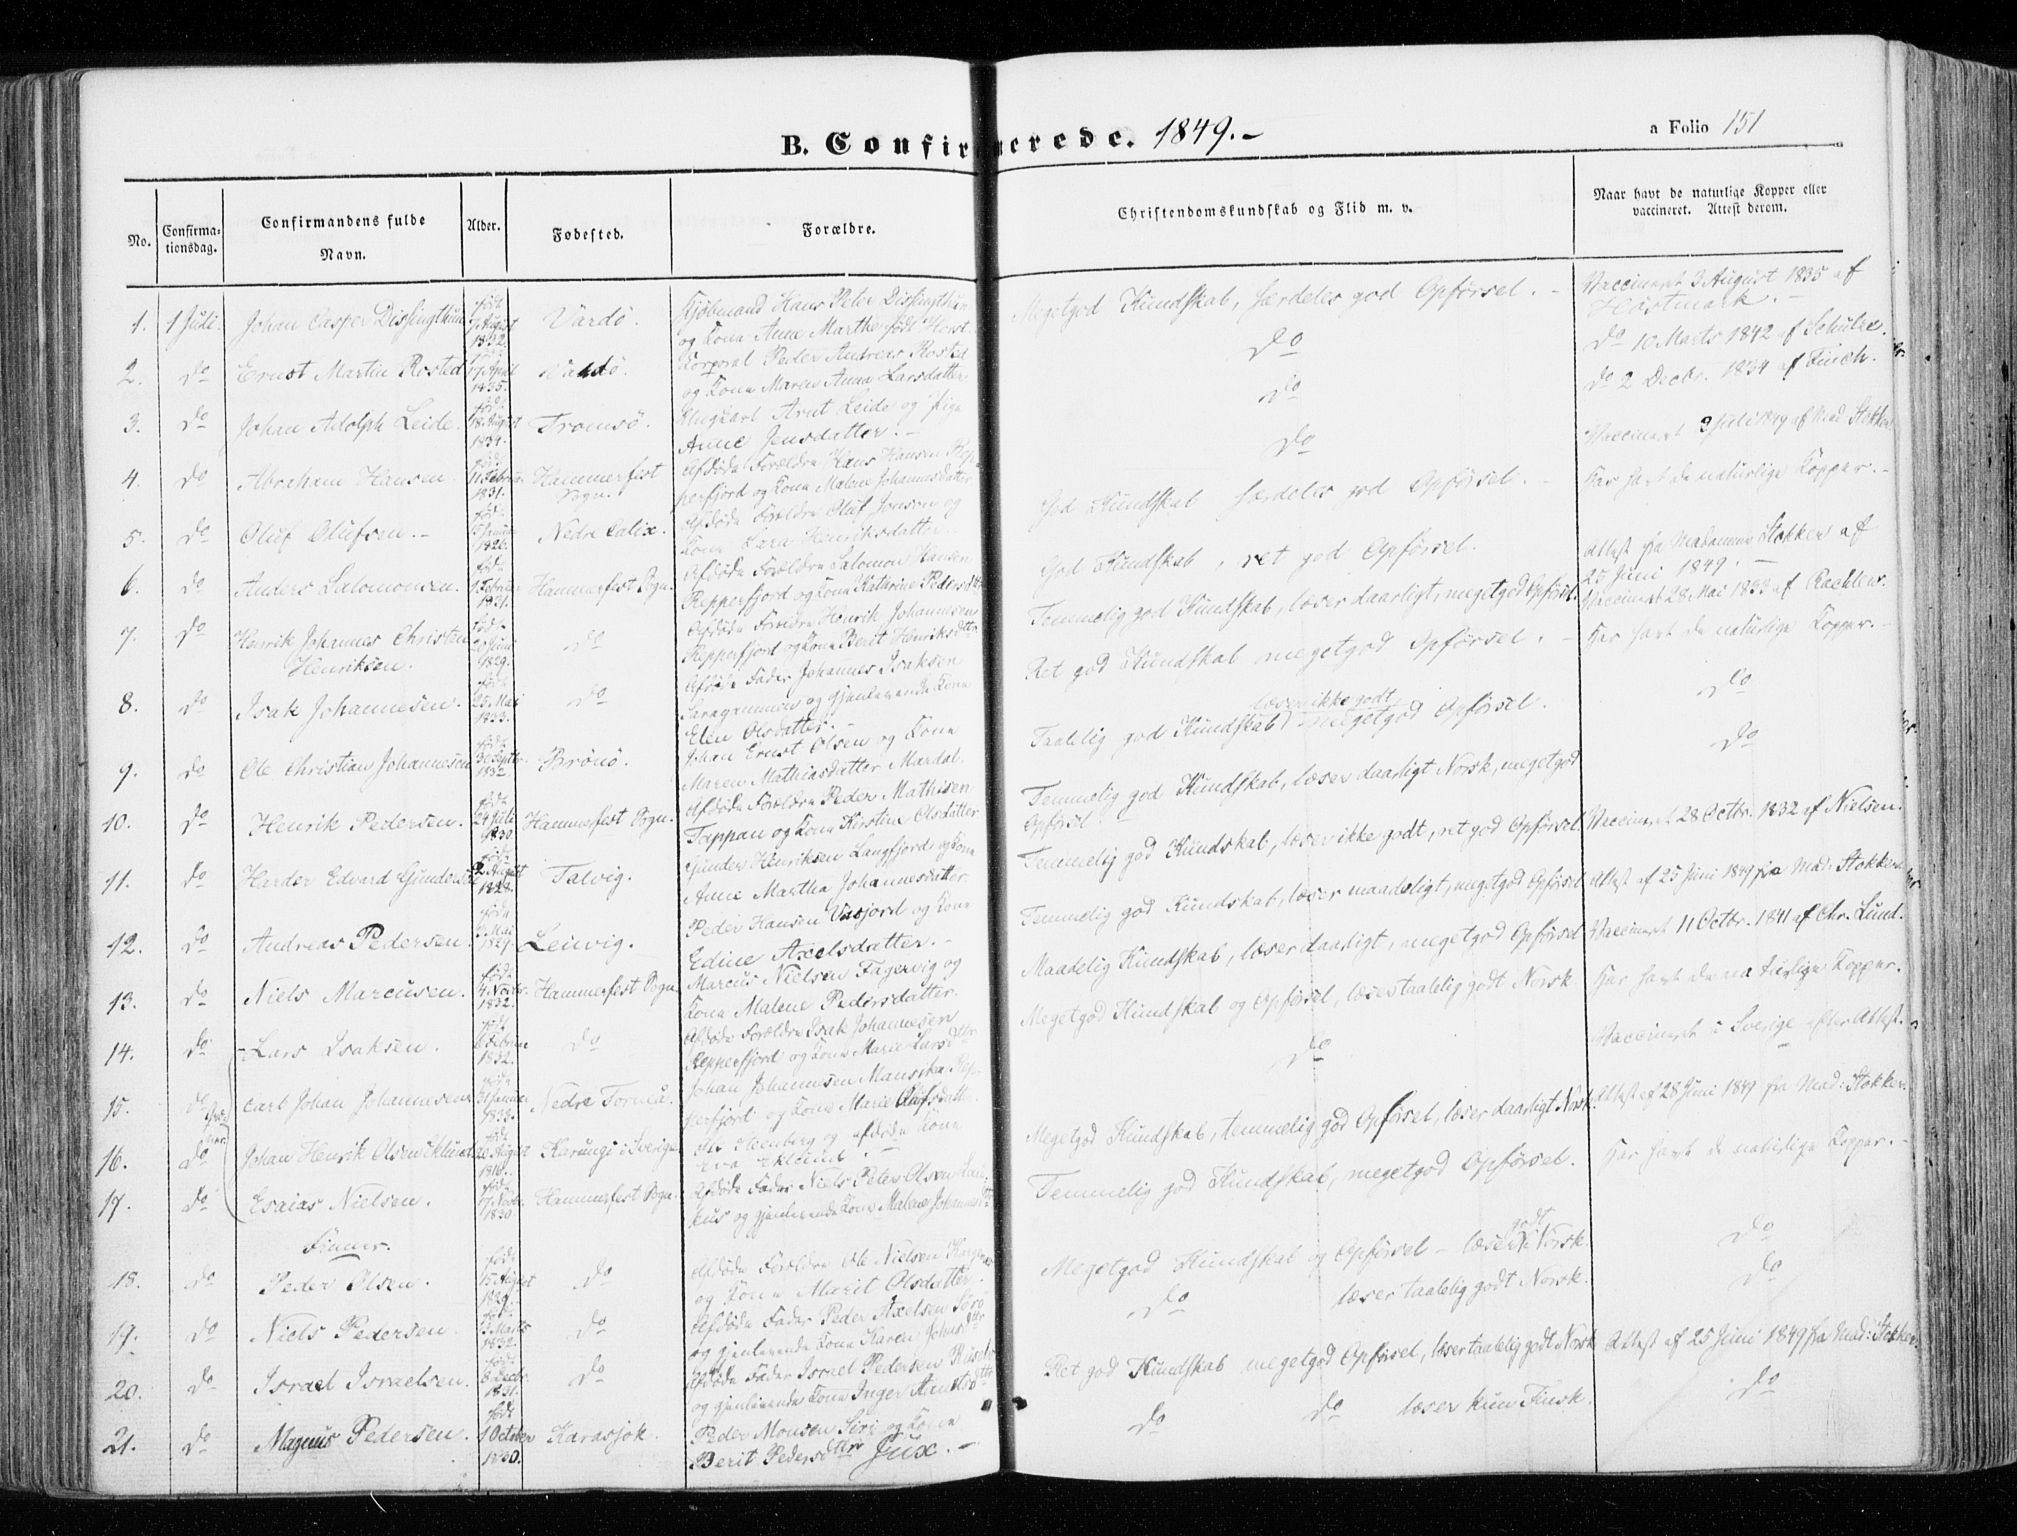 B. Confirmerede. 1849.-
a Folio 151
No.
Confirma-
tionsdag.
Confirmandens fulde
Navn.
Alder.
Fødested.
Forældre.
Christendomskundskab og Flid m. v.
Naar havt de naturlige Kopper eller
vaccineret. Attest derom.
1. 1 Juli. Johan Casper Dissingthun født 7 August 1832. Vardö. Kjøbmand Hans Peter Dissingthun
og Kona Anne Marthe født Horst. Megetgod Kundskab, særdeles god Opførsel. - Vaccineret 3 August 1835 af
Høstmark. -
2. do Ernst Martin Rosted 17 April 1835. Vardö. Korporal Peder Andreas Rosted
og Kona Maren Anna Larsdatter do do 10 Marts 1842 af Schulze.
3. do Johan Adolph Leide. født 18 August 1834. Tromsö. Arnt Leide og Pige
Anne Jensdatter. - do do 2 Decbr. 1834 af Finch.
4. do Abraham Hansen. født 11 Februar 1831. Hammerfest
Sogn. Afdøde Forældre Hans Hansen Rep-
perfjord og Kona Malene Johannesdatter do Vaccineret 2 Juli 1849 af Mad Stokken
5. do Oluf Olufsen. - født Januar 1826. Nedre Calix. Afdøde Forældre Oluf Jonsson og
Kona Sara Henriksdatter God Kundskab særdeles god Opførsel. - Har havt de naturlige Kopper. -
6. do Anders Salomonsen. født 1 Februar 1831. Hammerfest Sogn. Afdøde Forældre Salomon Hansen
Repperfjord og Kona Kathrine Pedersdtr God Kundskab, ret god Opførsel. Attest fra Madamme Stokken af
25 Juni 1849. -
7. do Henrik Johannes Christen
Henriksen. født 20 Juni 1829. do Afdøde Forældre Henrik Johannesen
Repperfjord og Kona Berit Henriksdtr Temmelig god Kundskab, læser daarligt, megetgod Opførsel. Vaccineret 28 Mai 1833 af
8. do Isak Johannesen. født 25 Mai 1833. do Afdøde Fader Johannes Isaksen
og gjenlevende Kona
Elen Olsdatter. - Ret god Kundskab megetgod Opførsel. - Har havt de naturlige Kopper. -
9. do Ole Christian Johannesen født 30 Septbr. 1832 Brønö. Johan Ernst Olsen og Kona
Maren Mathiasdatter Mardal. Taalelig god Kundskab, læser ikke godt, megetgod Opførsel. do
10. do Henrik Pedersen. født 24 Juli 1830 Hammerfest Sogn. Afdøde Forældre Peder Mathisen
Tappan og Kona Kirstine Olsdatter. Temmelig god Kundskab, læser daarligt Norsk, megetgod
Opførsel. do
11. do Harder Edvard Gundersen født August 1828. Talvig. Gunder Henriksen Langfjord og Kona
Anne Martha Johannesdatter. Temmelig god Kundskab, læser ikke godt, ret god Opførsel. Vaccineret 28 Octbr. 1832 af Nielsen.
12. do Andreas Pedersen. født Mai 1829. Leirvig. Peder Hansen og Kona
Edine Axelsdatter. - Temmelig god Kundskab, læser maadeligt, megetgod Opførsel. Attest af 25 Juni 1849 fra Mad: Stokken.
13. do Niels Marcusen. født 4 Novbr. 1832. Hammerfest Sogn. Marcus Nielsen Fagervig og
Kona Malene Pedersdatter. Maadelig Kundskab, læser daarligt, megetgod Opførsel Vaccineret 11 Octbr. 1841 af Chr. Lund.
14. do Lars Isaksen. født Februar 1832. do Afdøde Forældre Isak Johannesen
Repperfjord og Kona Marie Larsdtr Megetgod Kundskab og Opførsel, læser taalelig godt Norsk Har havt de naturlige Kopper.
15. do Carl Johan Johannesen født 31 Januar 1833. Nedre Torneå. Johan Johannesen Rep-
perfjord og Kona Marie Olufsdatter. do Vaccineret i Sverige efter Attest.
16. do Johan Henrik Olsen Eklund født 20 August 1816. Karungi i Sverige Ole og afdøde Kona
Eva Eklund. - Megetgod Kundskab, temmelig god Opførsel, læser daarligt Norsk. Attest af 28 Juni 1849 fra Mad: Stokken.
17. do Esaias Nielsen. født 17 Novbr 1830 Hammerfest Sogn. Afdøde Fader Niels Peter Olsen
og gjenlevende Kona Malene Johannesdtr Temmelig god Kundskab, megetgod Opførsel. Har havt de naturlige Kopper. -
Finner.
18. do Peder Olsen. født 15 August 1829. do Afdøde Forældre Ole Nielsen
og Kona Marit Olsdatter. Megetgod Kundskab og Opførsel - læser godt Norsk. do
19. do Niels Pedersen. født Marts 1832. do Afdøde Fader Peder Axelsen Sörö
og gjenlevende Kona Karen Johnsdtr do læser taalelig godt Norsk. do
20. do Israel Israelsen. født 8 Decbr. 1831. do Afdøde Fader Israel Pedersen
og gjenlevende Kona Inger Ret god Kundskab megetgod Opførsel, læser taalelig godt Norsk Attest af 25 Juni 1849 fra Mad: Stokken.
21. do Magnus Pedersen. født 1 October 1830. Karasjok. Peder Monsen Siri og Kona
Berit Pedersdtr Jux. - do do læser kun Finsk. do